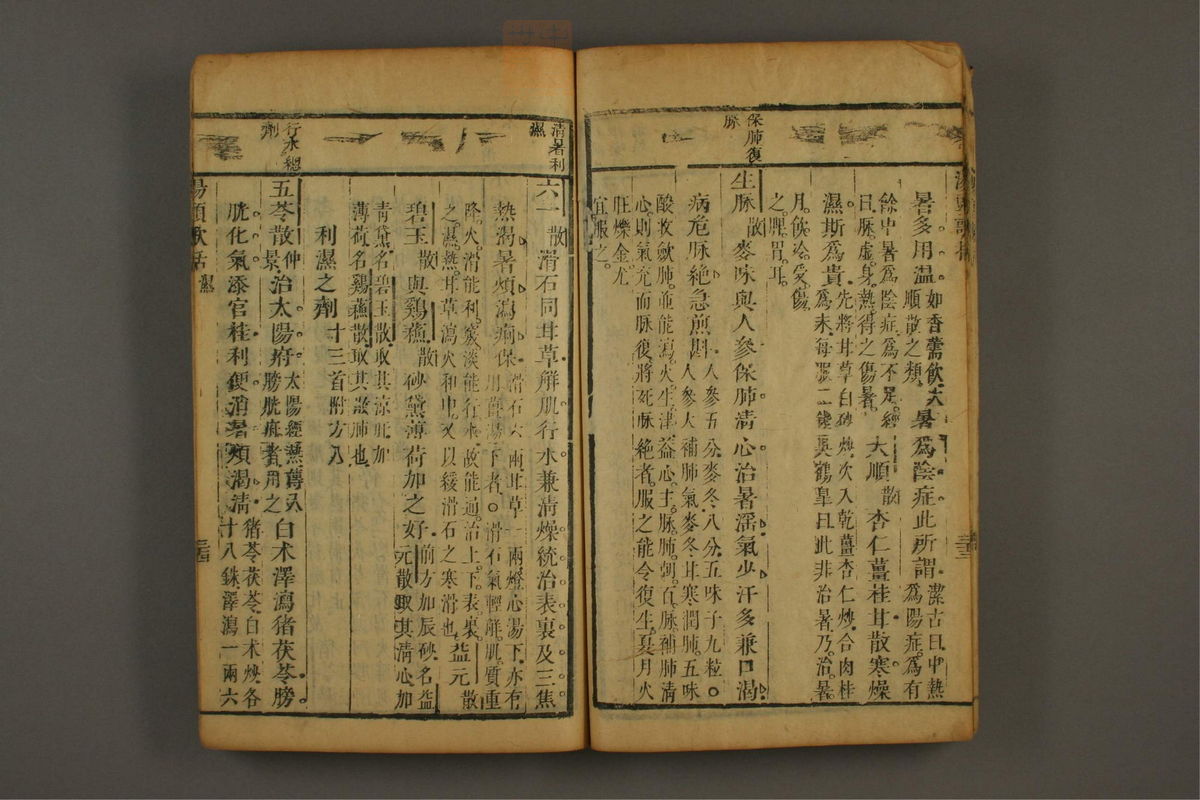 保肺復脉
暑多用温如香薷飲六
順散之類。
暑為陰症此所謂潔古曰中熱
為陽症為有
餘中暑為陰症為不足經
曰脉虛身熱得之傷暑。
大順散 杏仁薑桂甘散寒燥
濕斯為貴先將甘草白砂炒次入乾薑杏仁炒合肉桂
為末每服二錢吳鶴臯曰此非治暑乃治暑
月飲冷受傷
之脾胃耳。
生脉散 麥味與人參保肺清心治暑淫氣少汗多兼口渴
病危脉絶急煎斟人參五分麥冬八分五味子九粒。
人參大補肺氣麥冬甘寒潤肺五味
酸收歛肺並能瀉火生津益心主脉肺朝百脉補肺清
心則氣充而脉復將死脉絶者服之能令復生夏月火
旺爍金尤
宜服之。
清暑利濕
六一散 滑石同甘草解肌行水兼清燥統治表裏及三焦
熱渴暑煩瀉痢保滑石六兩甘草一兩燈心湯下亦有
用薑湯下者。滑石氣輕解肌質重
降火滑能利竅淡能行水故能通治上下表裏
之濕熱甘草瀉火和中又以緩滑石之寒滑也
益元散
碧玉散與雞蘇散砂黛薄荷加之好前方加辰砂名益
元散取其清心加
青黛名碧玉散取其涼肝加
薄荷名雞蘇散取其散肺也
利濕之劑十三首附方八
行水總劑
五苓散仲景治太陽府太陽經熱傳入
膀胱府者用之
白术澤瀉猪茯苓膀
胱化氣添官桂利便消暑煩渴清猪苓茯苓白术炒各
十八銖澤瀉一兩六
湯頭歌括 濕